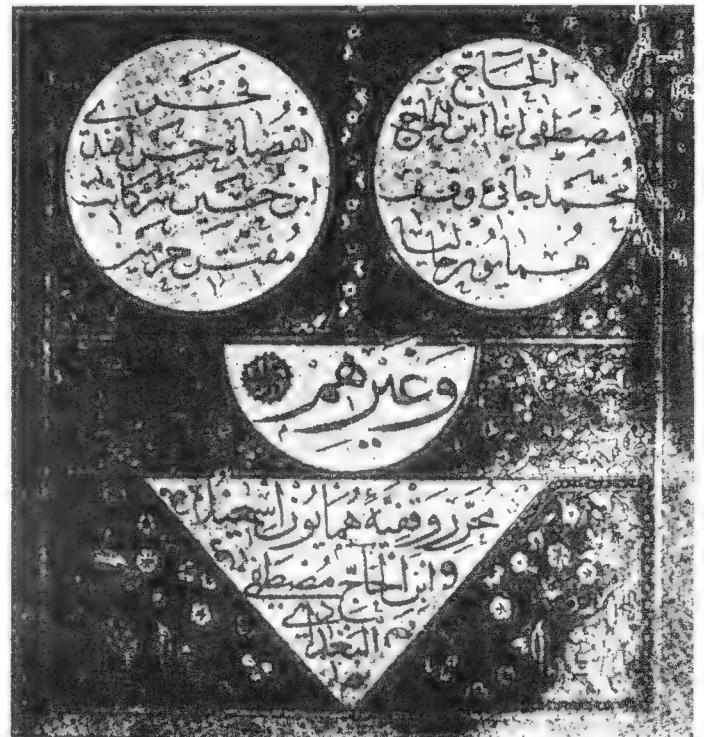 الحاج
مصطفى اغا ابن الحاج
محمد جابئ وقف
همايون حالا
فخري
القضاة حسن افندي
ابن حسين سركاتب
مفتش حرمين
وغيرهم
محرر وقفيه همايون اسمعيل
وابن الحاج مصطفى